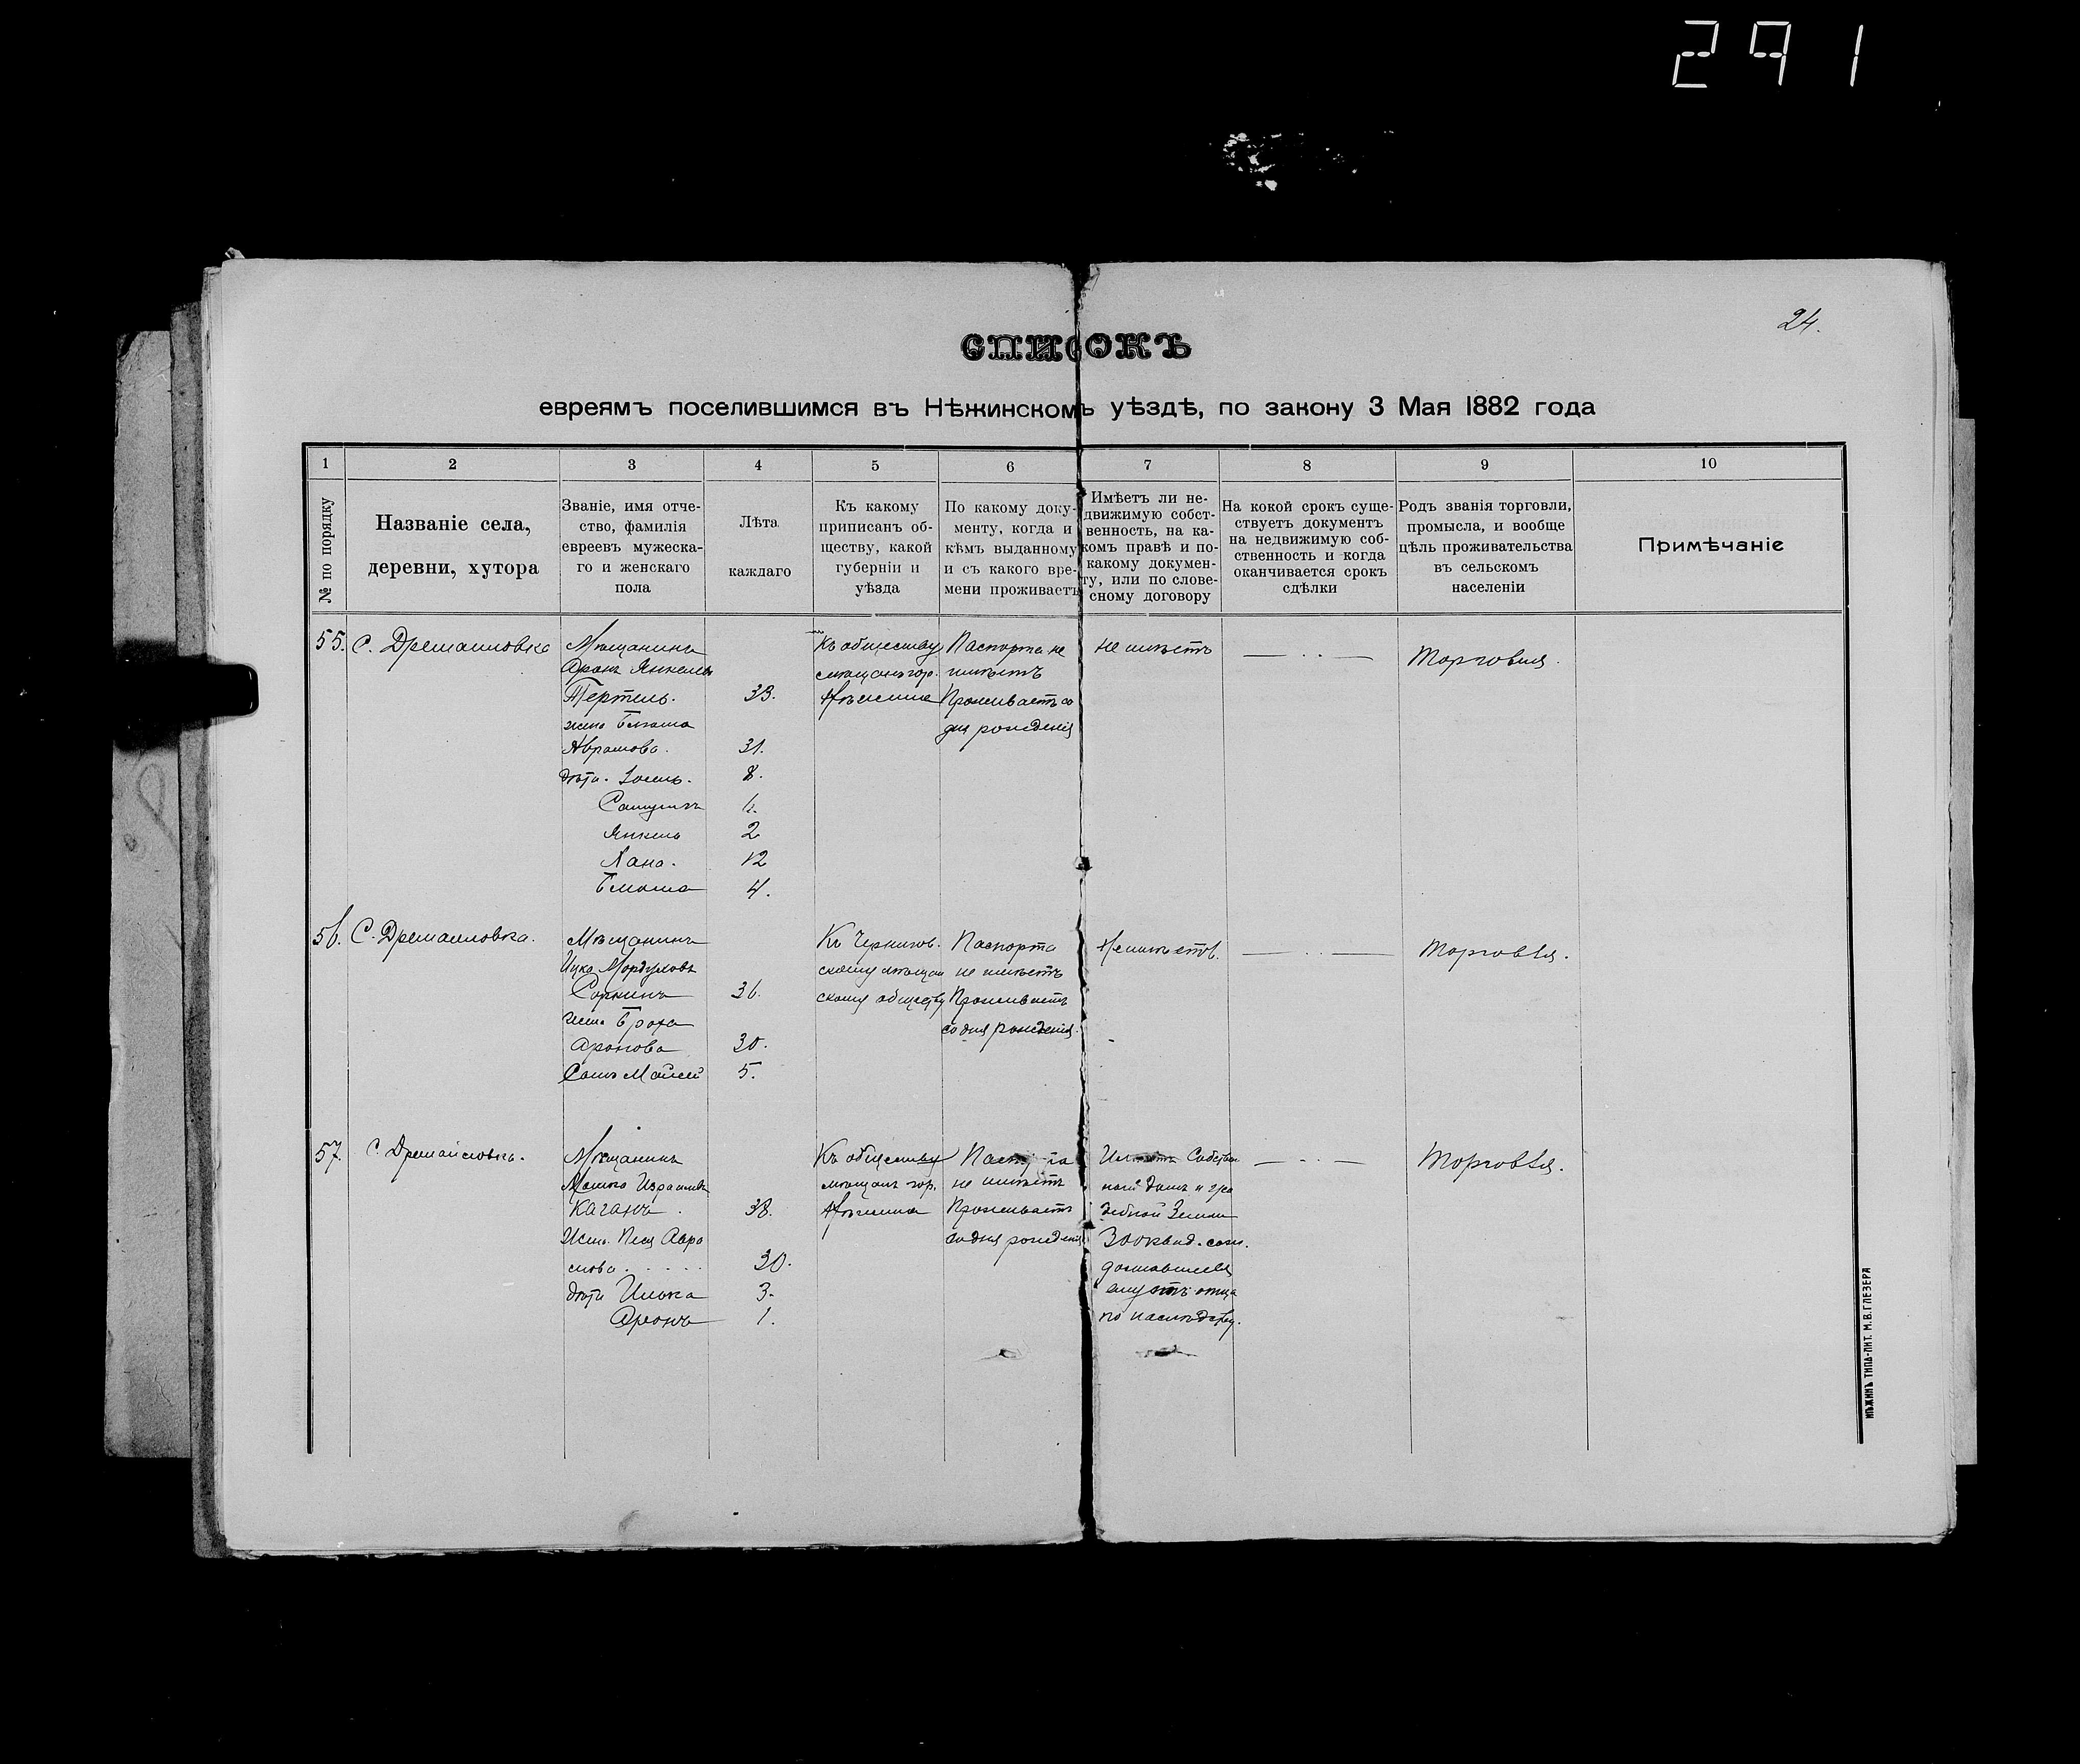 291
24.
СПИСОКЪ
евреямъ поселившимся въ Нѣжинскомъ уѣздѣ, по закону 3 Мая 1882 года
1 2 3 4 5 6 7 8 9 10
№ по порядку
Названіе села,
деревни, хутора
Званіе, имя отче-
ство, фамилія
евреевъ мужеска-
го и женскаго
пола
Лѣта
каждаго
Къ какому
приписанъ об-
ществу, какой
губерніи и
уѣзда
По какому доку-
менту, когда и
кѣмъ выданному
и съ какого вре-
мени проживаетъ
Имѣетъ ли не-
движимую собст-
венность, на ка-
комъ правѣ и по-
какому докумен-
ту, или по слове-
сному договору
На кокой срокъ суще-
ствуетъ документъ
на недвижимую соб-
ственность и когда
оканчивается срокъ
сдѣлки
Родъ званія торговли,
промысла, и вообще
цѣль проживательства
въ сельскомъ
населеніи
Примѣчаніе
55. С. Дремайловка
Мѣщанинъ
Аронъ Янкель
Тертель. 33.
жена Блюма
Аврамова. 31.
дѣти. Іосель. 8.
Самуилъ 6.
Янкель 2
Хана. 12
Блюма 4.
Къ обществу
мѣщанъ гор.
Нѣжина
Паспорта не
имѣетъ
Проживаетъ со
дня рожденія
не имѣетъ
— . . —
Торговля.
56. С. Дремайловка.
Мѣщанинъ
Ицко Мордуховъ
Соркинъ 36.
жена Броха
Аронова 30.
Сынъ Мойсей 5.
Къ Чернигов.
скому мѣщан
скому обществу
Паспорта
не имѣетъ
Проживаетъ
со дня рожденія.
Не имѣетъ.
— . . —
Торговля.
57. С. Дремайловка.
Мѣщанинъ
Мошко Израилевъ
Каганъ. 38.
Жена Песя Авра
мова . . . . . 30.
дѣти Илька 3.
Аронъ 1.
Къ обществу
мѣщанъ гор.
Нѣжина
не имѣетъ
Проживаетъ
со дня рожденія
Имѣетъ Собствен
ный домъ и уса
дебной Земли
300 квад. саж.
доставшійся
ему отъ отца
по наслѣдству.
— . . —
Торговля.
НѢЖИНЪ ТИПО-ЛИТ. М.В.ГЛЕЗЕРА